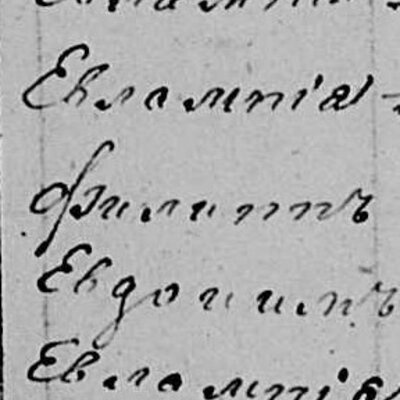 Евлампія
Филиппъ
Евдокимъ
Евлампія